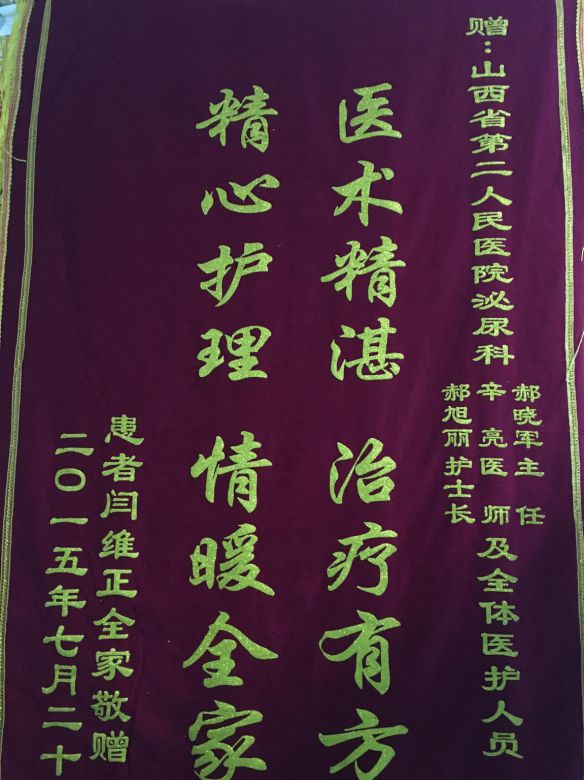 赠：山西省第二人民医院泌尿科
郝晓军主 任
辛 亮医 师
郝旭丽护士长
及全体医护人员
医术精湛 治疗有方
精心护理 情暖全家
患者闫维正全家敬赠
二〇一五年七月二十